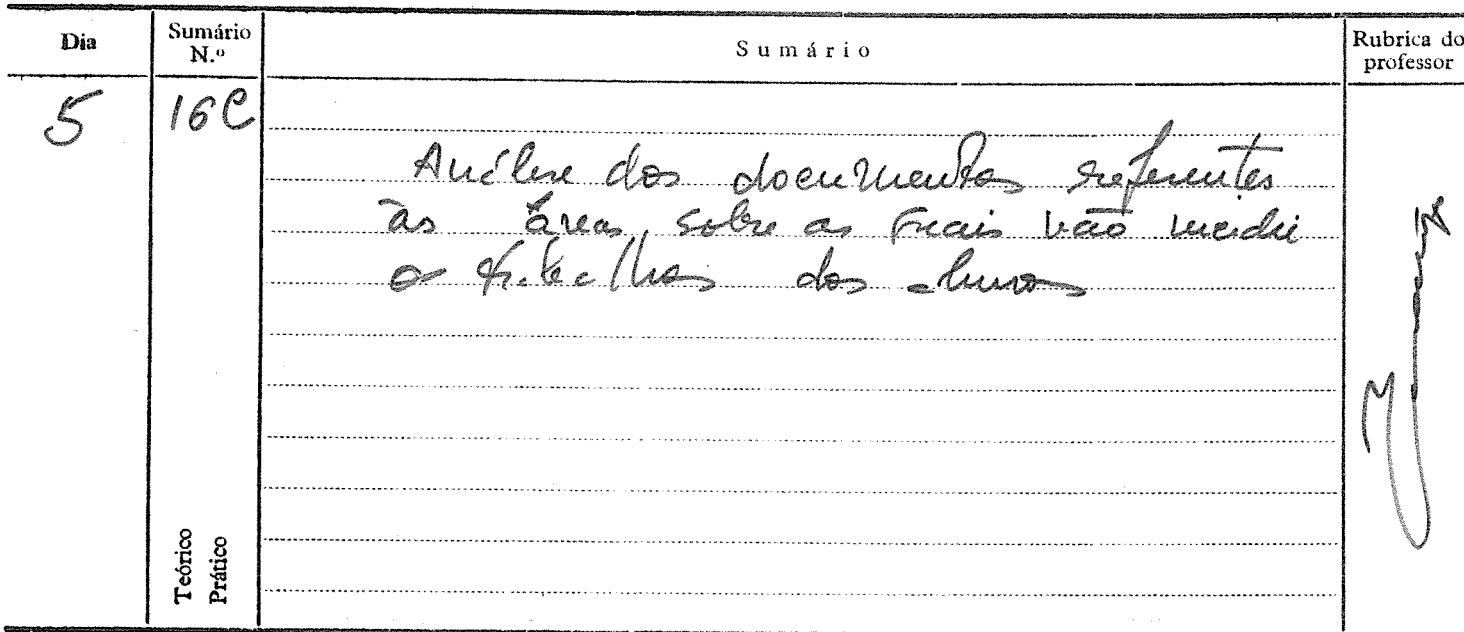 Dia
Sumário
N.º
Sumário
Rubrica do
professor
5
16C
Análise dos documentos referentes
às áreas sobre as quais vão incidir
os trabalhos dos alunos
Teórico
Prático